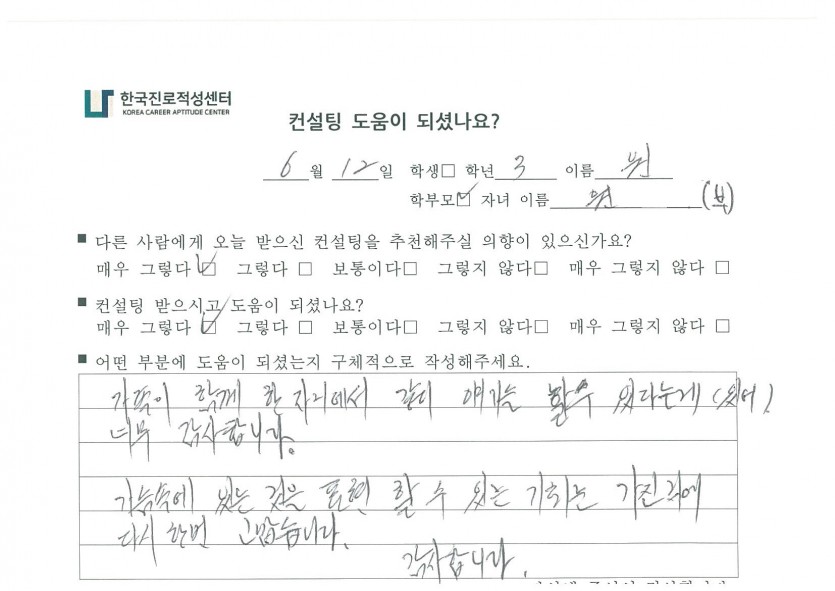 한국진로적성센터
KOREA CAREER APTITUDE CENTER
컨설팅 도움이 되셨나요?
6월 12일 학생□ 학년 3 이름 원
학부모☑ 자녀 이름 원 (부)
■ 다른 사람에게 오늘 받으신 컨설팅을 추천해주실 의향이 있으신가요?
매우 그렇다 ☑ 그렇다 □ 보통이다□ 그렇지 않다□ 매우 그렇지 않다 □
■ 컨설팅 받으시고 도움이 되셨나요?
매우 그렇다 ☑ 그렇다 □ 보통이다□ 그렇지 않다□ 매우 그렇지 않다 □
■ 어떤 부분에 도움이 되셨는지 구체적으로 작성해주세요.
가족이 함께 한 자리에서 같이 얘기를 할수 있다는게 (있어)
너무 감사합니다.
가슴속에 있는 것을 표현 할 수 있는 기회를 가진것에
다시 한번 고맙습니다.
감사합니다.